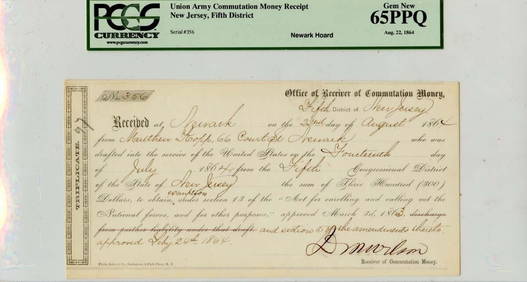 PCGS
CURRENCY
www.pcgscurrency.com
Union Army Commutation Money Receipt
New Jersey, Fifth District
Serial#356
Newark Hoard
Gem New
65PPQ
Aug. 22, 1864
No. 356
Office of Receiver of Commutation Money,
Fifth District of New Jersey
Received at Newark on the 22nd day of August 1864
from Matthew 66 Court St Newark who was
drafted into the service of the United States on the Fourteenth day
of July 1864 from the Fifth Congressional District
of the State of New Jersey the sum of Three Hundred (300)
Dollars, to obtain exemption under section 13 of the "Act for enrolling and calling out the
National forces, and for other purposes," approved March 3d, 1863, discharge
from further liability under that draft. and section 5 of the amendments thereto
approved Feby 24th 1864.
Receiver of Commutation Money.
TRIPLICATE